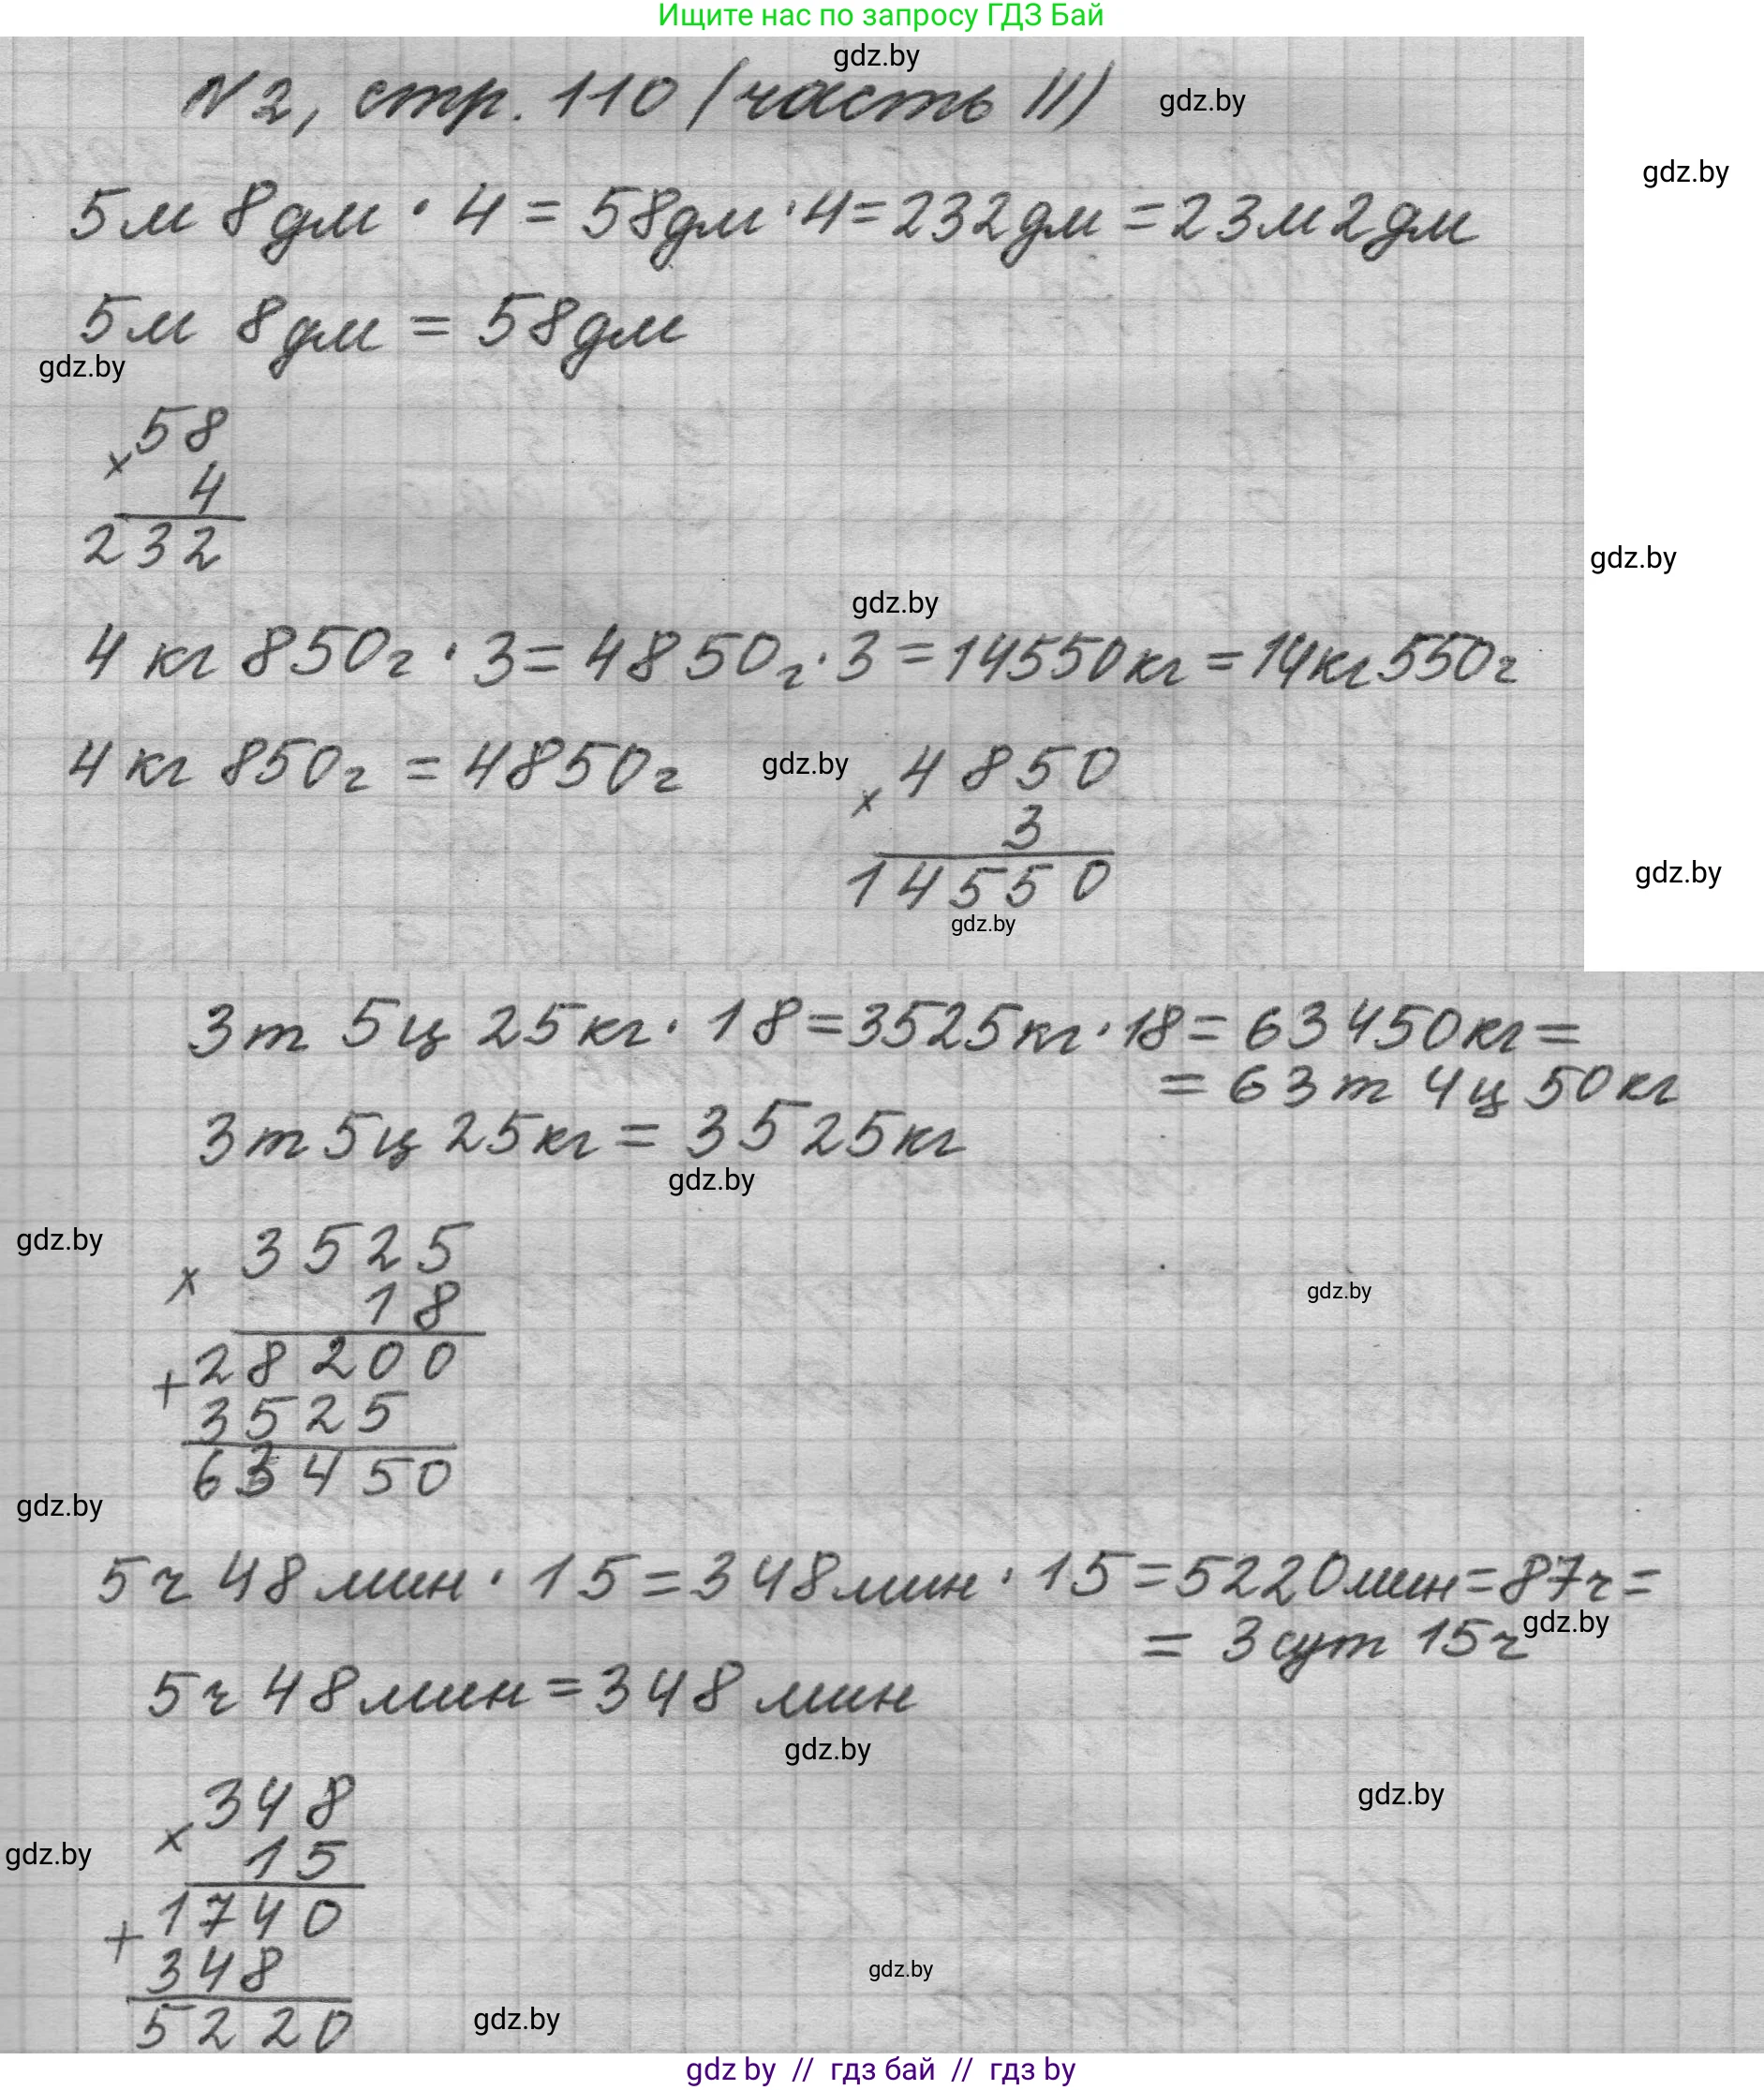 Ищите нас по запросу ГДЗ Бай
gdz.by
N 2, стр. 110 (часть II)
gdz.by
gdz.by
5м 8дм · 4 = 58дм · 4 = 232дм = 23м 2дм
5м 8дм = 58дм
gdz.by
58
× 4
232
gdz.by
gdz.by
4 кг 850г · 3 = 4850г · 3 = 14550кг = 14кг 550г
4 кг 850г = 4850г
gdz.by
× 4850
3
14550
gdz.by
gdz.by
3т 5ц 25кг · 18 = 3525кг · 18 = 63450кг =
= 63т 4ц 50кг
3т 5ц 25кг = 3525кг
gdz.by
gdz.by
× 3525
18
gdz.by
+ 28200
3525
63450
gdz.by
5ч 48мин · 15 = 348мин · 15 = 5220мин = 87ч =
= 3сут 15ч
gdz.by
5ч 48мин = 348 мин
gdz.by
gdz.by
× 348
15
gdz.by
+ 1740
348
5220
gdz.by
gdz.by
gdz by // гдз бай // гдз by